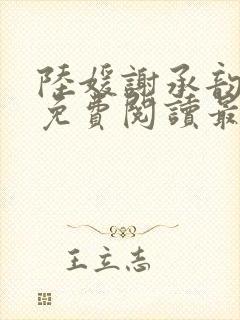 陸媛謝承韵
免費閱讀最
王立志